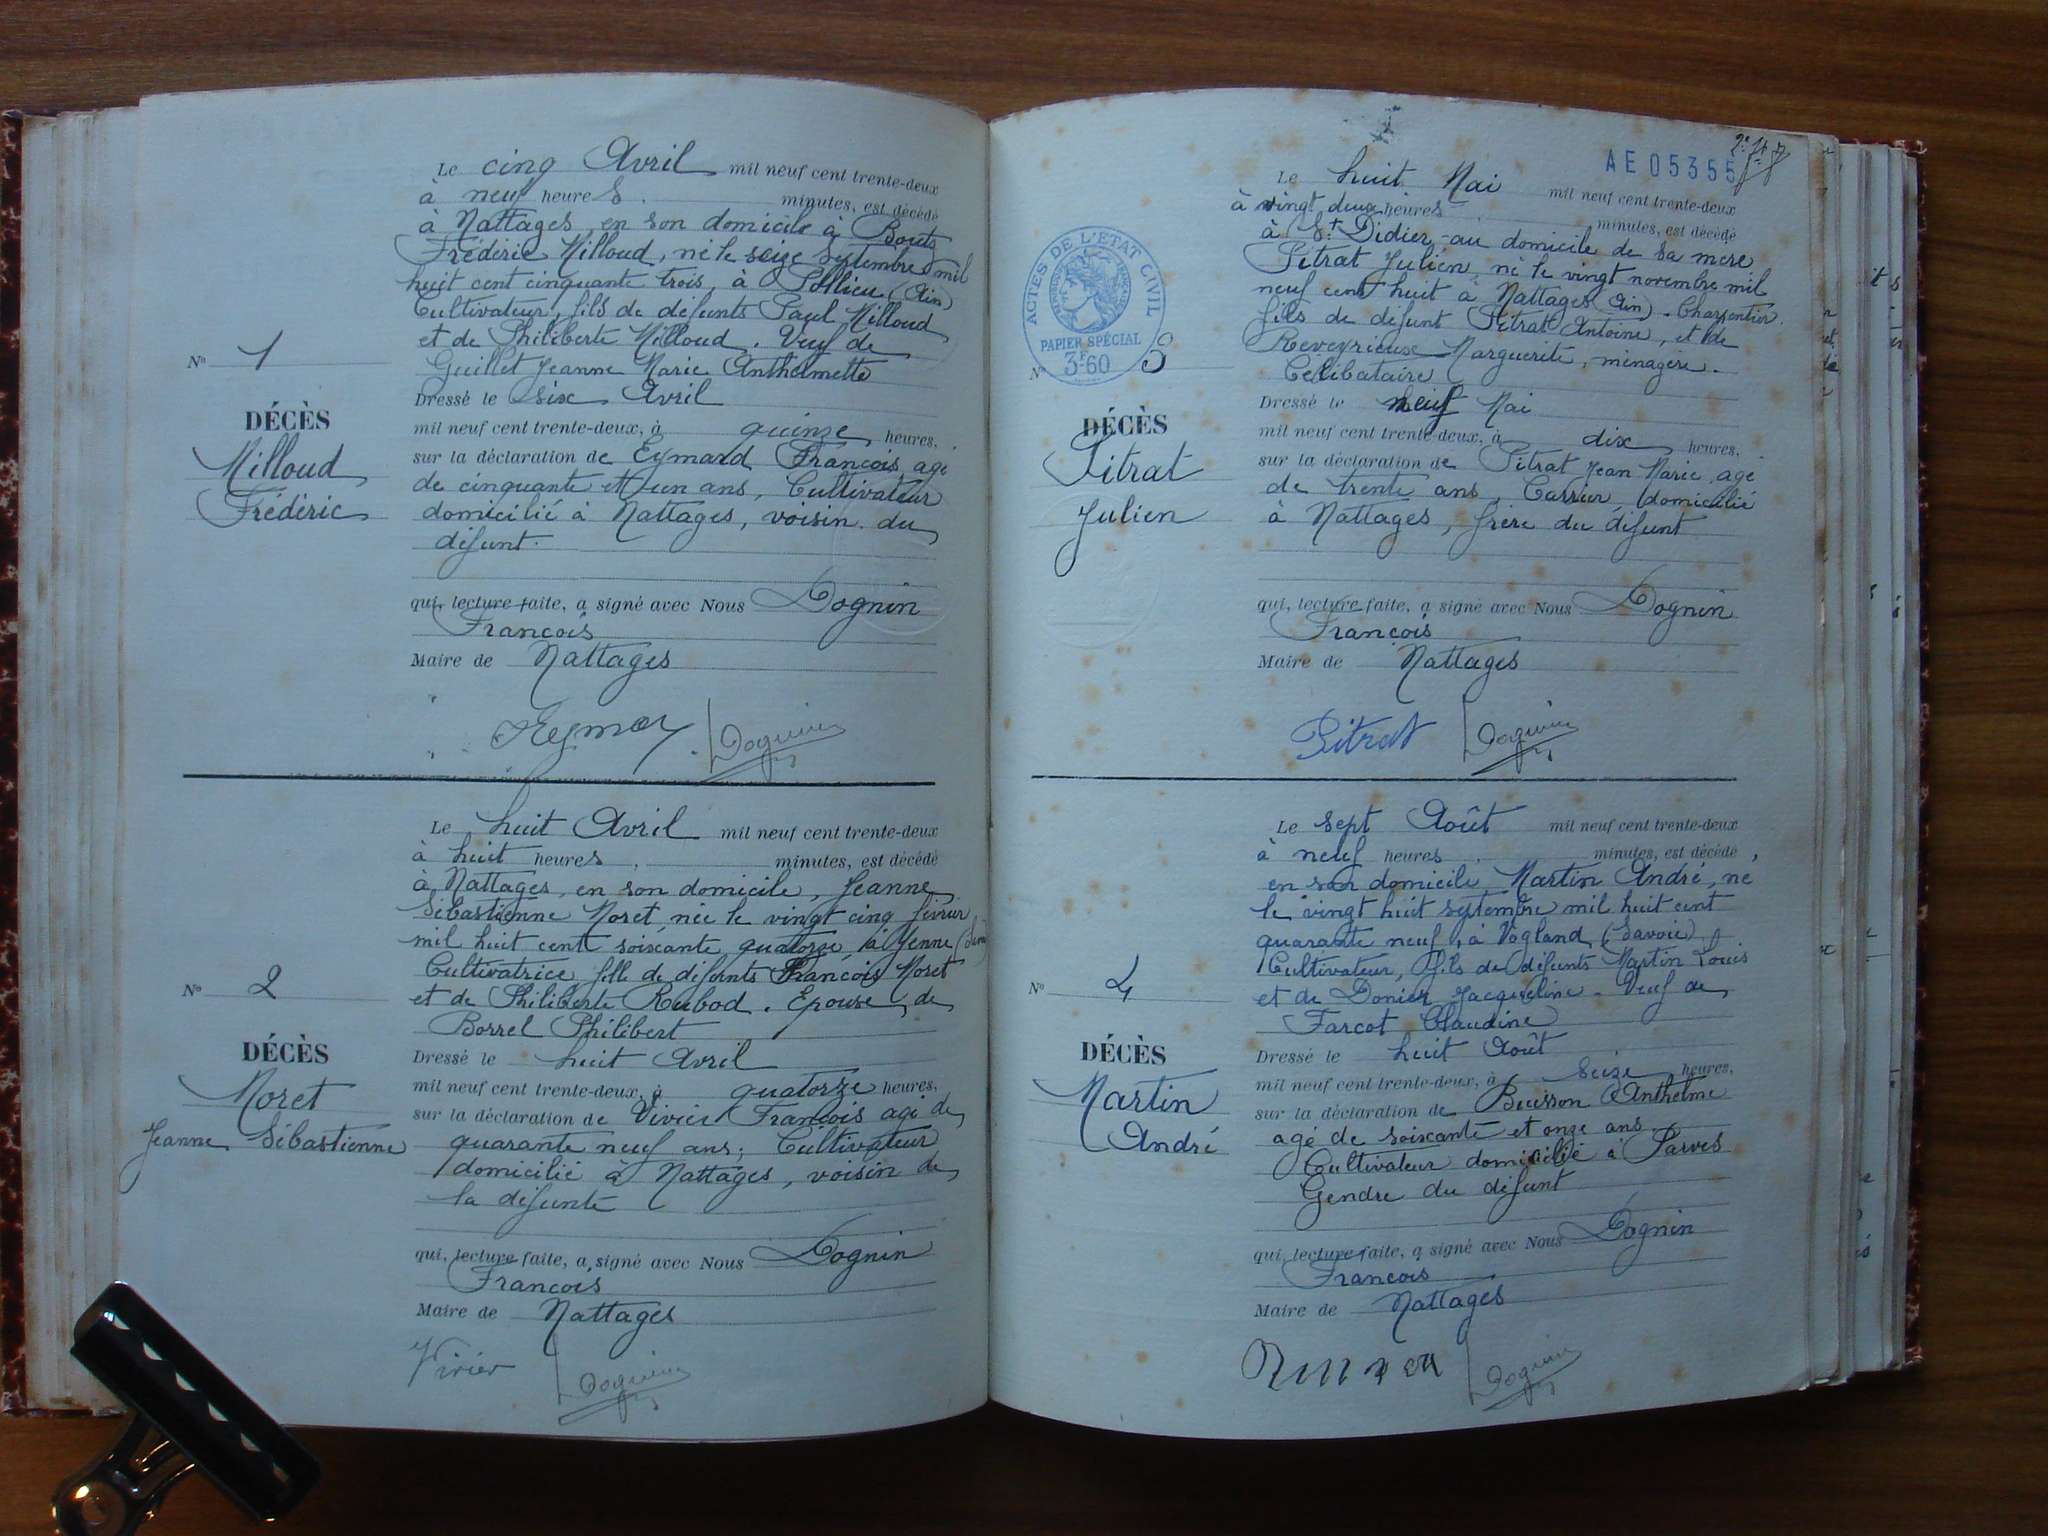 Le cinq Avril mil neuf cent trente-deux
à neuf heures minutes, est décédé
à Nattages, en son domicile à Bouts
Frédéric Milloud, né le seize septembre mil
huit cent cinquante trois, à Pollieu (Ain)
Cultivateur, fils de défunts Paul Milloud
et de Philiberte Milloud. Veuf de
Guillet Jeanne Marie Anthelmette
Nº 1
DÉCÈS
Milloud
Frédéric
Dressé le six Avril
mil neuf cent trente-deux, à quinze heures,
sur la déclaration de Eymard François, agé
de cinquante et un ans, Cultivateur
domicilié à Nattages, voisin du
défunt.
qui, lecture faite, a signé avec Nous Dognin
François
Maire de Nattages
Dognin
Le huit Avril mil neuf cent trente-deux
à huit heures minutes, est décédé
à Nattages, en son domicile, Jeanne
Sébastienne Moret, née le vingt cinq février
mil huit cent soixante quatorze, à Yenne
Cultivatrice, fille de défunts François Moret
et de Philiberte Rubod. Epouse de
Borrel Philibert
Nº 2
DÉCÈS
Moret
Jeanne Sébastienne
Dressé le huit Avril
mil neuf cent trente-deux, à quatorze heures,
sur la déclaration de Vivier François agé de
quarante neuf ans, Cultivateur
domicilié à Nattages, voisin de
la défunte
qui, lecture faite, a signé avec Nous Dognin
François
Maire de Nattages
Vivier Dognin
AE 05355
ACTES DE L'ETAT CIVIL
PAPIER SPÉCIAL
3F60
Le huit Mai mil neuf cent trente-deux
à vingt deux heures minutes, est décédé
à St Didier, au domicile de sa mère
Pitrat Julien, né le vingt novembre mil
neuf cent huit à Nattages (Ain). Charpentier.
fils de défunt Pitrat Antoine, et de
Reveyrieuse Marguerite, ménagère.
Célibataire
Nº 3
DÉCÈS
Pitrat
Julien
Dressé le neuf Mai
mil neuf cent trente-deux, à dix heures,
sur la déclaration de Pitrat Jean Marie, agé
de trente ans, Carrier, domicilié
à Nattages, frère du défunt
qui, lecture faite, a signé avec Nous Dognin
François
Maire de Nattages
Pitrat Dognin
Le sept Août mil neuf cent trente-deux
à neuf heures minutes, est décédé,
en son domicile, Martin André, né
le vingt huit septembre mil huit cent
quarante neuf, à Vogland (Savoie).
Cultivateur, fils de défunts Martin Louis
et de Donier Jacqueline. Veuf de
Farcot Claudine
Nº 4
DÉCÈS
Martin
André
Dressé le huit Août
mil neuf cent trente-deux, à seize heures,
sur la déclaration de Buisson Anthelme
agé de soixante et onze ans.
Cultivateur domicilié à Parves
Gendre du défunt
qui, lecture faite, a signé avec Nous Dognin
François
Maire de Nattages
Dognin